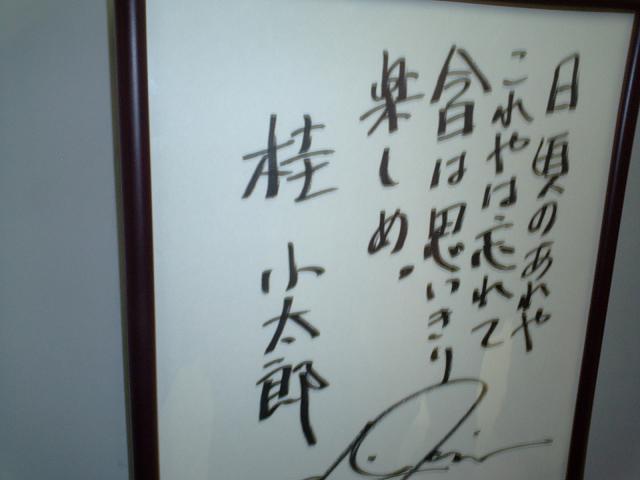 日頃のあれや
これやは忘れて
今日は思いきり
楽しめ。
桂 小太郎